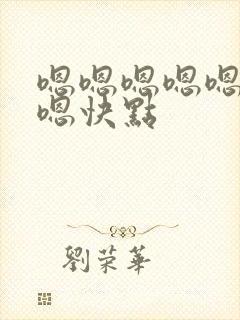 嗯嗯嗯嗯嗯
嗯快點
劉荣華